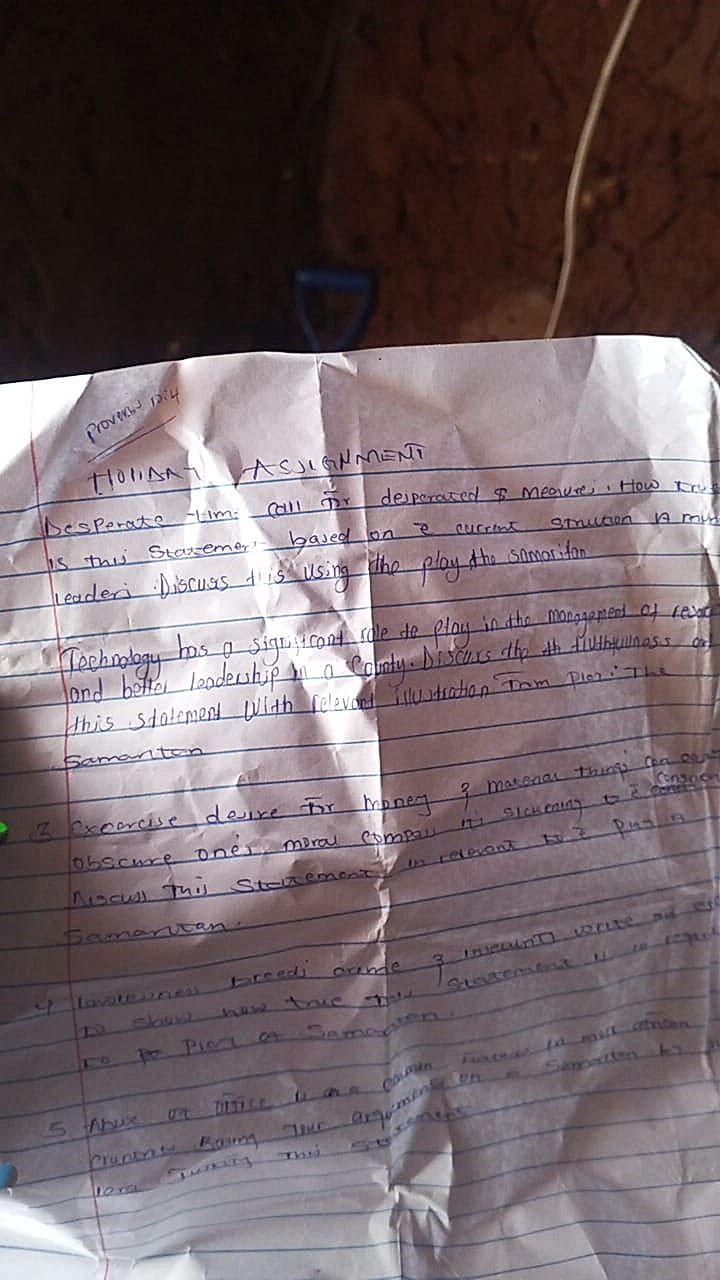 Proverbs 12:4
HOLIDAY ASSIGNMENT
Desperate time call for desperated & measures. How true
is this Statement based on e current situation
leaders. Discuss this using the play the samaritan
Technology has a significant role to play in the management of
and better leadership in a County. Discuss the th truthfulness
this statement with relevant illustration from play: The
Samaritan
3 Excercise desire for money & material things can
obscure one's moral compass its sickening to e
Discuss this Statement in relevant to e play
Samaritan.
4 Lawlessness breeds crime & insecurity write an
to show how true this statement is
to the play
5 Abuse of office is a common in most african
countries Basing your arguments on e Samaritan by
this statement